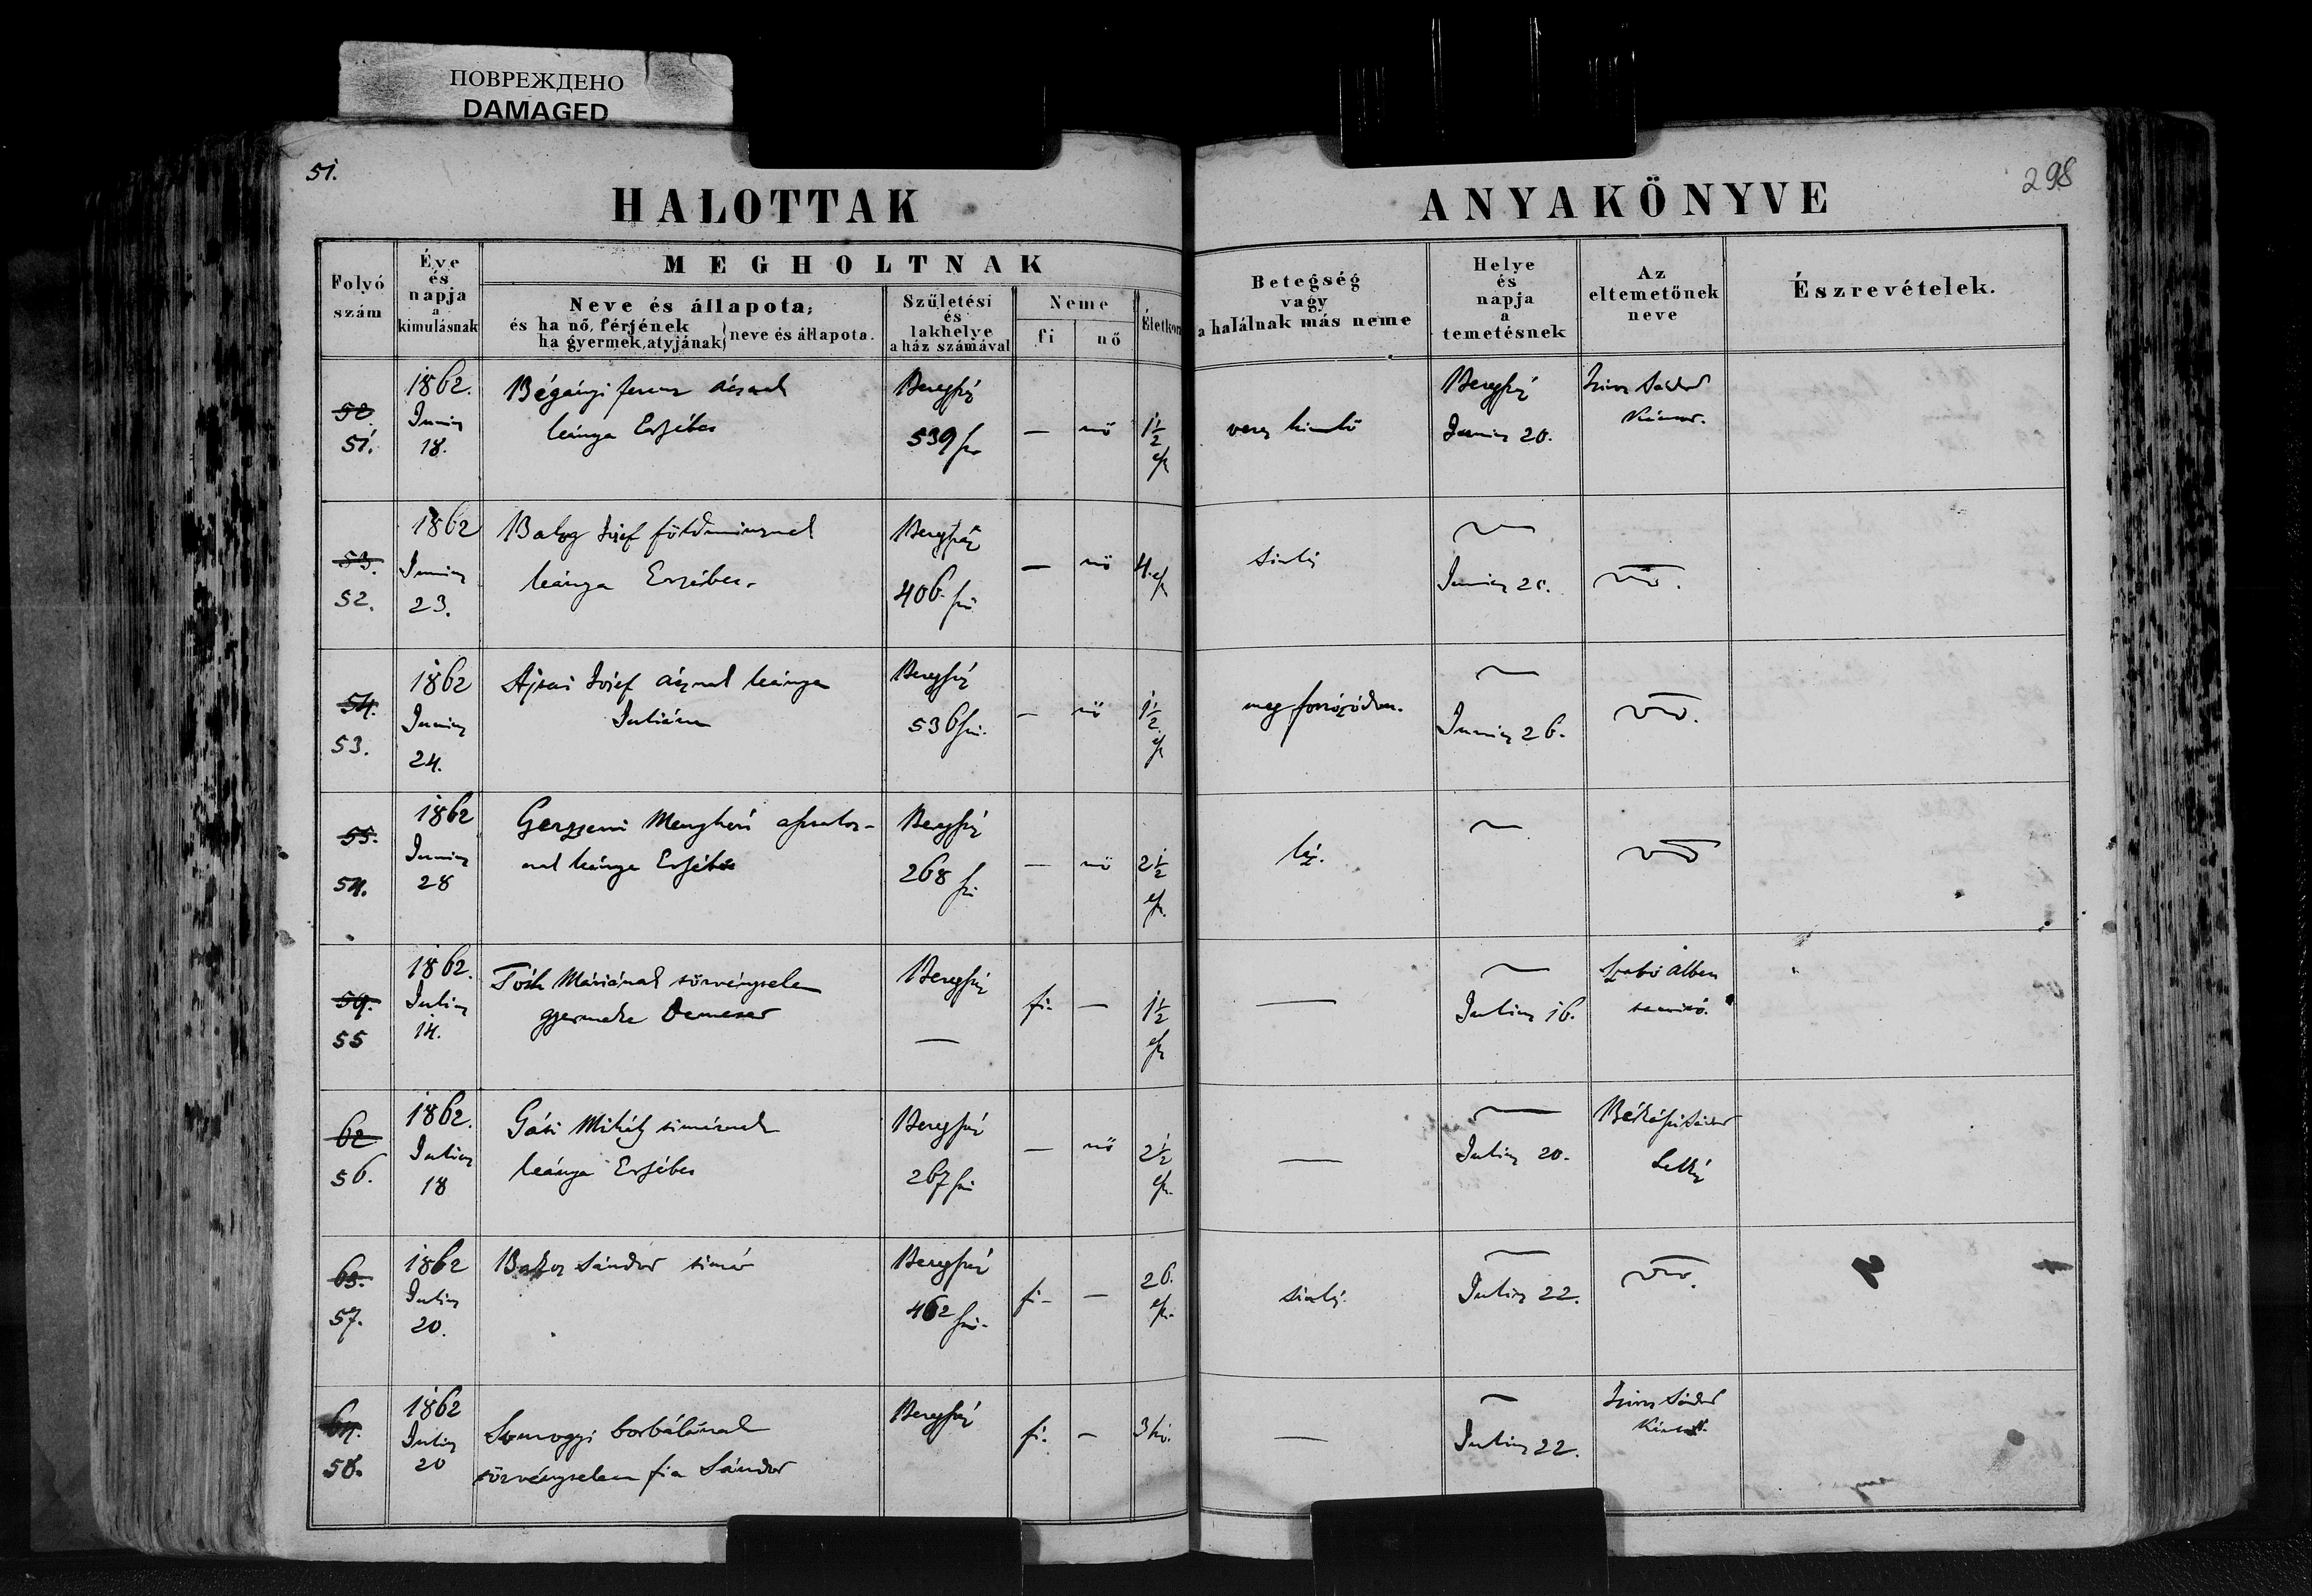 ПОВРЕЖДЕНО
DAMAGED
51.
298
HALOTTAK
ANYAKÖNYVE
Folyó
szám
Éve
és
napja
a
kimulásnak
MEGHOLTNAK
Neve és állapota,
és ha nő, férjének
ha gyermek, atyjának
neve és állapota.
Születési
és
lakhelye
a ház számával
Neme
fi
nő
Életkor
Betegség
vagy
a halálnak más neme
Helye
és
napja
a
temetésnek
Az
eltemetőnek
neve
Észrevételek.
52.
51.
1862.
Junius
18.
Bégányi ferenc ácsnak
leánya Erzsébet
Beregszász
539 sz
—
nő
1 1/2
é
veres himlő
Beregszász
Junius 20.
Sándor
53.
52.
1862
Junius
23.
József földmivesnek
leánya Erzsébet.
Beregszász
406
—
nö
4.
Junius
54.
53.
1862
Junius
24.
József leánya
Juliána
Beregszász
536
—
nö
1 1/2
meg forrózódva.
Junius 26.
55.
54.
1862
Junius
28
Menyhért asztalos-
nak leánya Erzsébet
Beregszász
268
—
nö
2 1/2
láz.
59.
55
1862.
Julius
14.
Tóth Máriának törvénytelen
gyermeke Demeter
Beregszász
—
fi-
—
1 1/2
—
Julius 16.
Szabó Albert
tanitó.
62
56.
1862.
Julius
18
Mihály timárnak
leánya Erzsébet
Beregszász
267
—
nö
2 1/2
—
Julius 20.
Békássi Sándor
63.
57.
1862
Julius
20.
Sándor timár
Beregszász
462
fi-
—
26.
Julius 22.
64.
58.
1862
Julius
20
Somogyi borbálának
törvénytelen fia Sándor
Beregszász
fi.
—
3 hó.
—
Julius 22.
Sándor